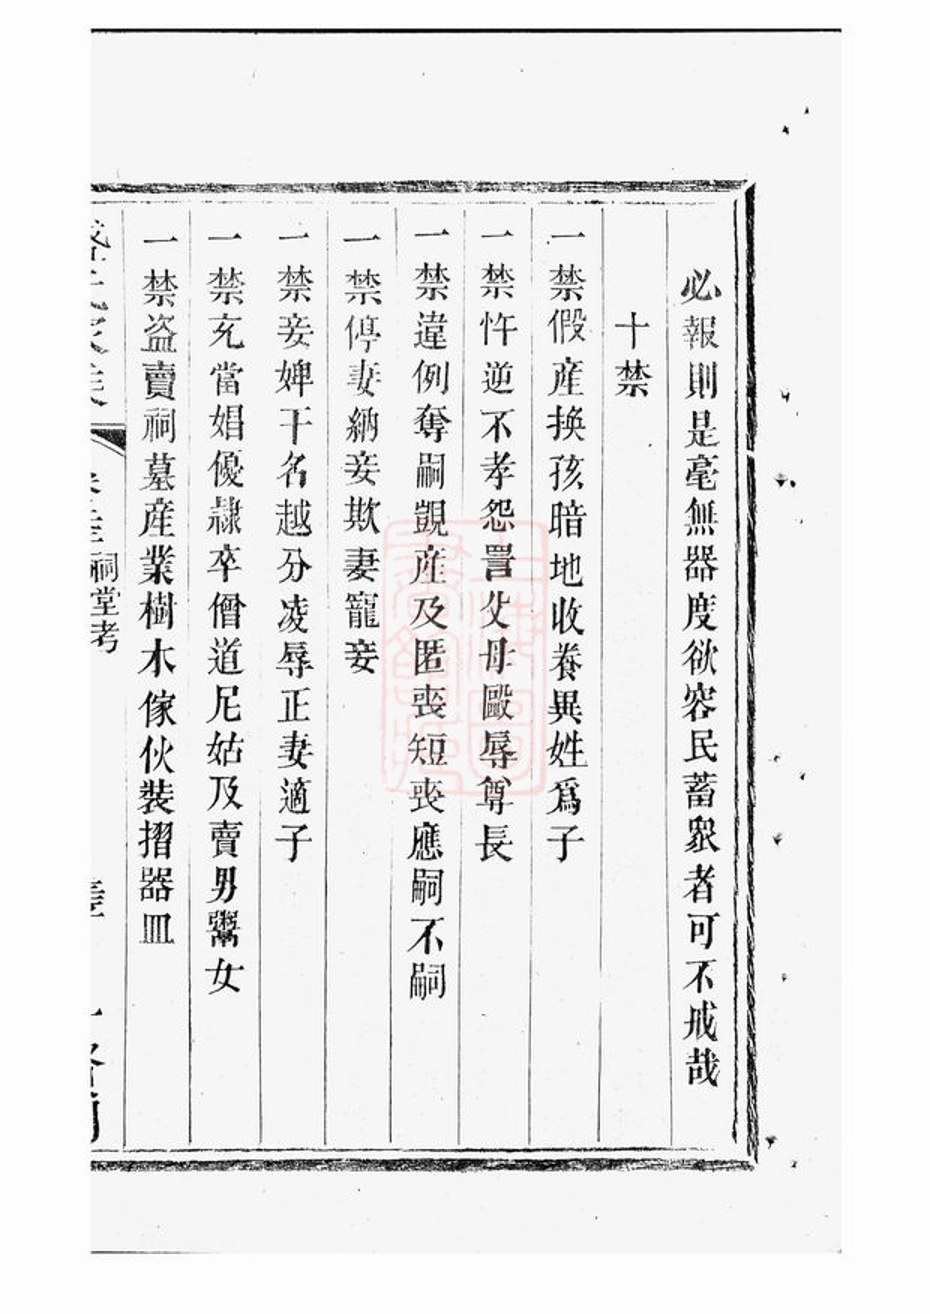 必報則是毫無器度欲容民蓄衆者可不戒哉
十禁
一禁假產换孩暗地收養異姓爲子
一禁忤逆不孝怨詈父母毆辱尊長
一禁違例奪嗣覬產及匿喪短喪應嗣不嗣
一禁停妻納妾欺妻寵妾
一禁妾婢干名越分凌辱正妻適子
一禁充當娼優隷卒僧道尼姑及賣男鬻女
一禁盗賣祠墓產業樹木傢伙裝摺器皿
祠堂考
上海圖書館藏